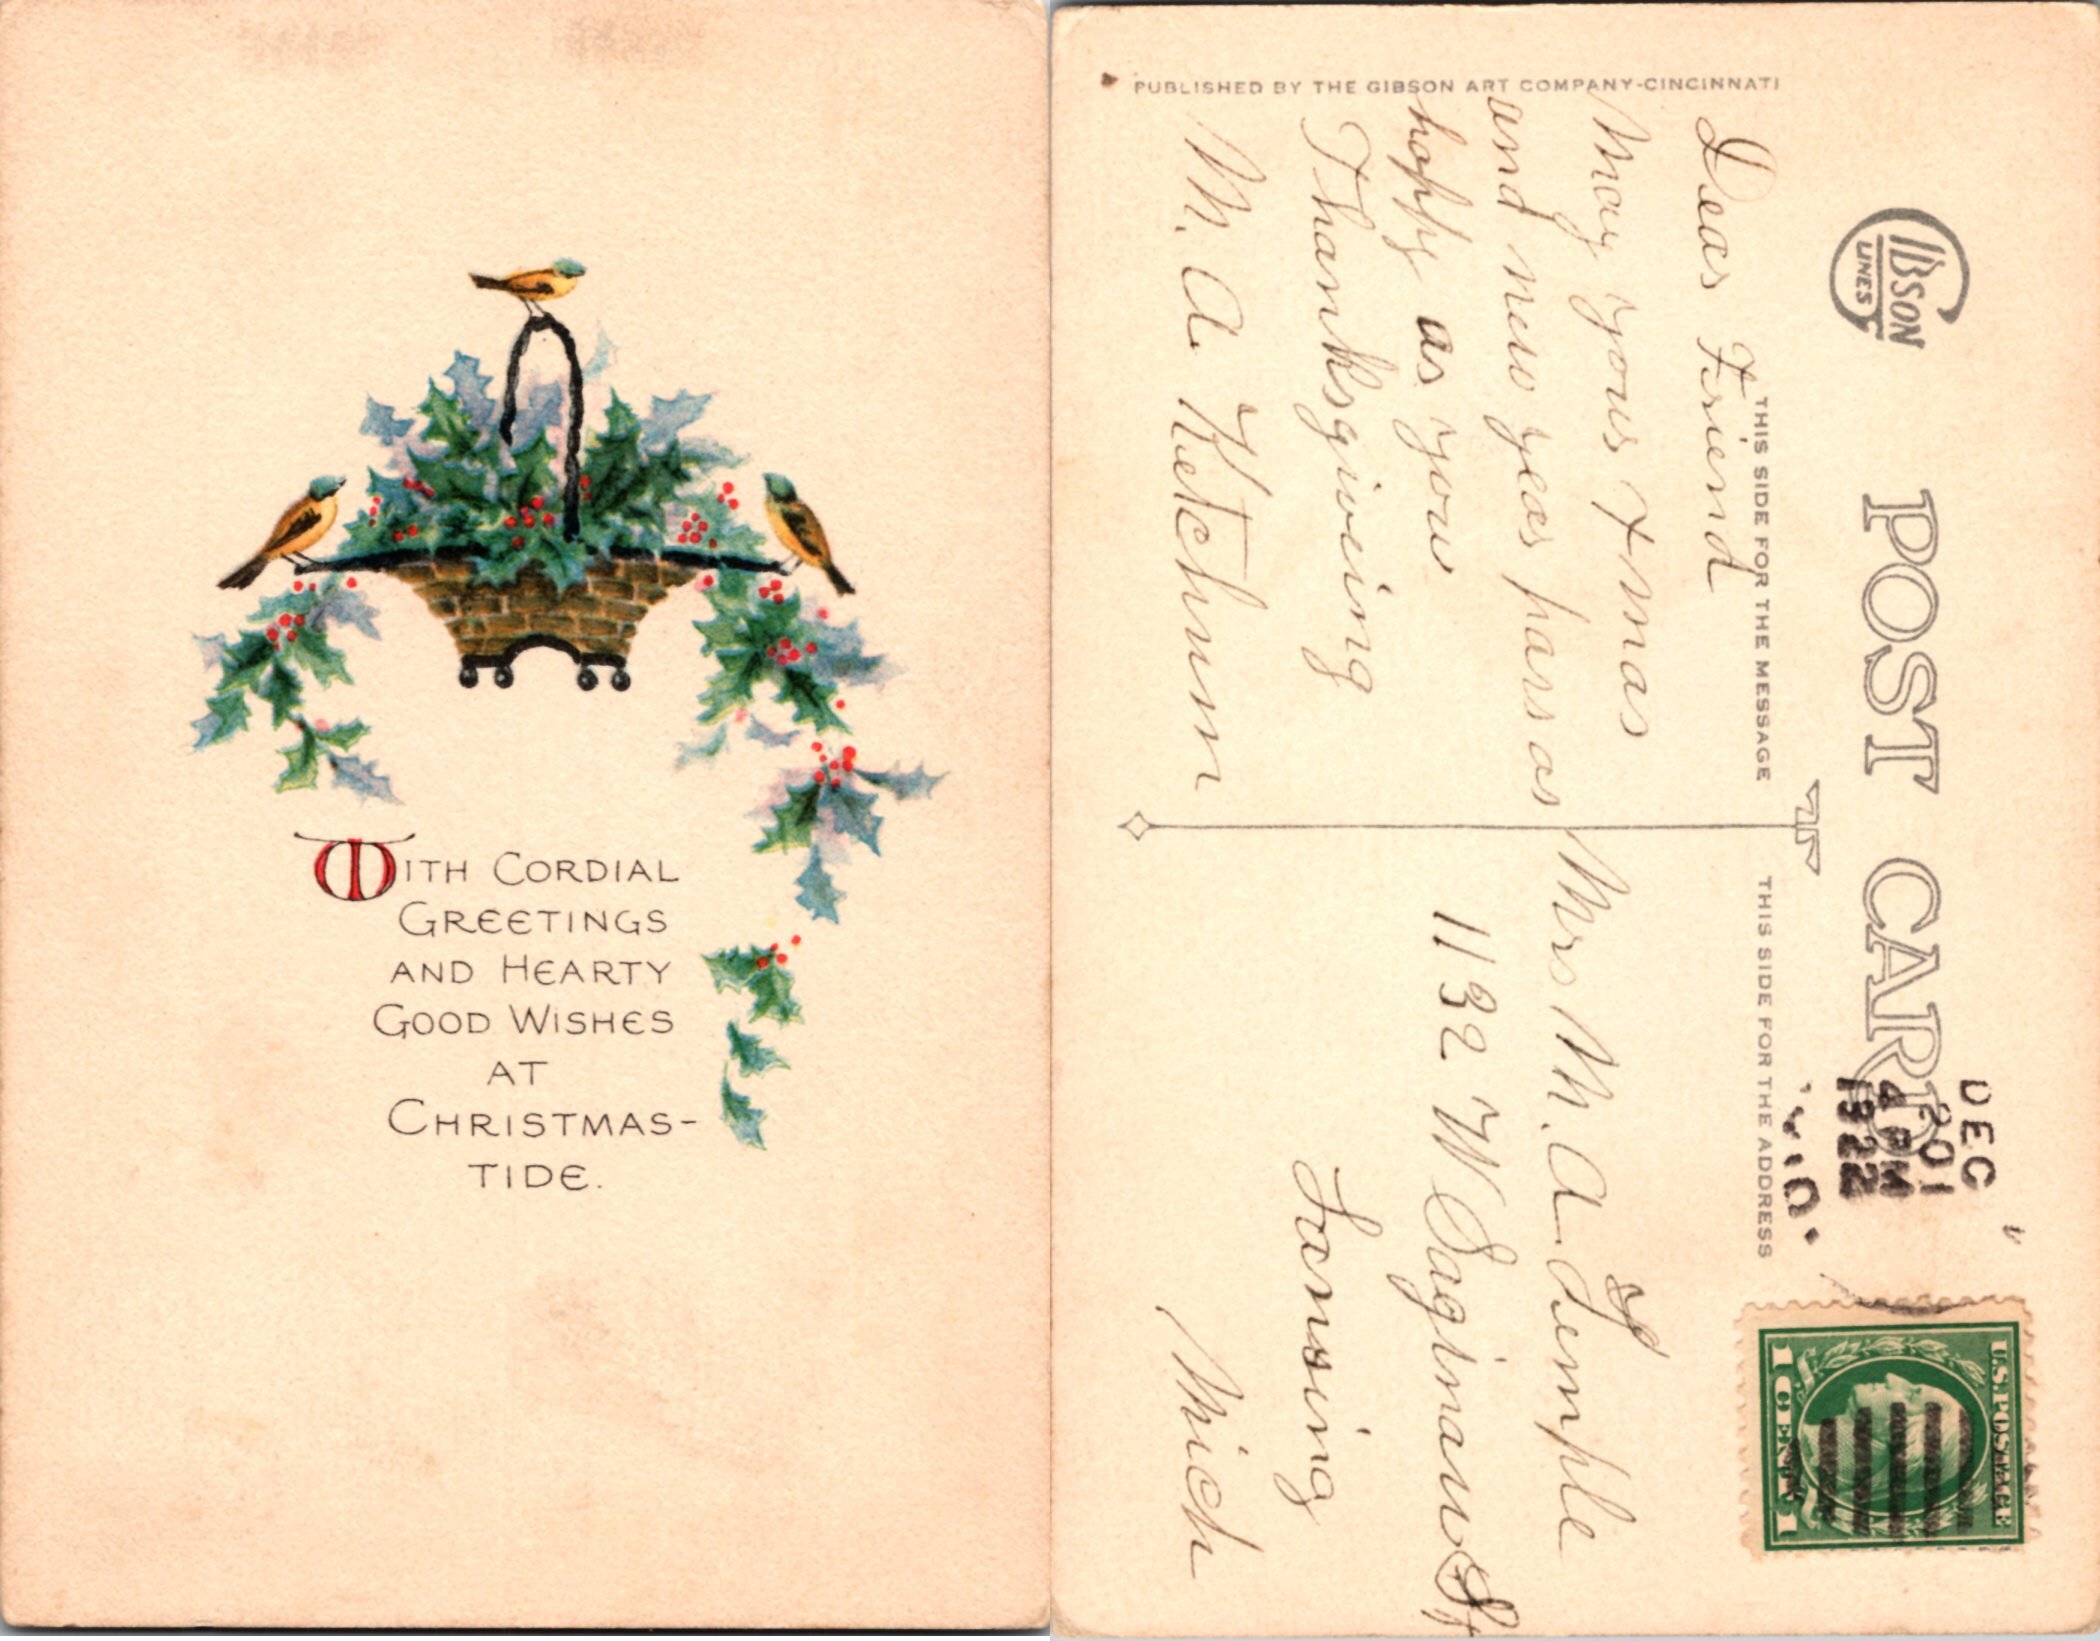 WITH CORDIAL
GREETINGS
AND HEARTY
GOOD WISHES
AT
CHRISTMAS-
TIDE.
PUBLISHED BY THE GIBSON ART COMPANY-CINCINNATI
GIBSON
LINES
POST CARD
THIS SIDE FOR THE MESSAGE
THIS SIDE FOR THE ADDRESS
DEC
20
4 PM
1922
U.S. POSTAGE
1 CENT 1
Dear Friend
May your Xmas
and new year pass as
happy as your
Thanksgiving
M. A. Ketchum
Mrs M. A. Temple
1132 W Saginaw St
Lansing
Mich